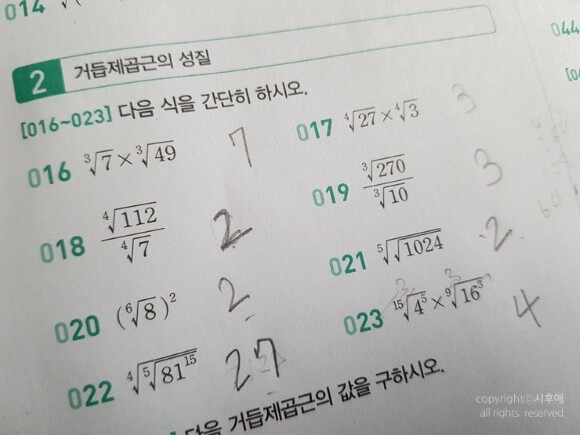 014
2 거듭제곱근의 성질
[016~023] 다음 식을 간단히 하시오.
016 ∛7 × ∛49 7
017 ∜27 × ∜3 3
018 ∜112 / ∜7 2
019 ∛270 / ∛10 3
020 (⁶√8)² 2
021 ⁵√√1024 2
022 ∜⁵√81¹⁵ 27
023 ¹⁵√4⁵ × ⁹√16³ 4
다음 거듭제곱근의 값을 구하시오.
044
copyrightⓒ시후애
all rights reserved